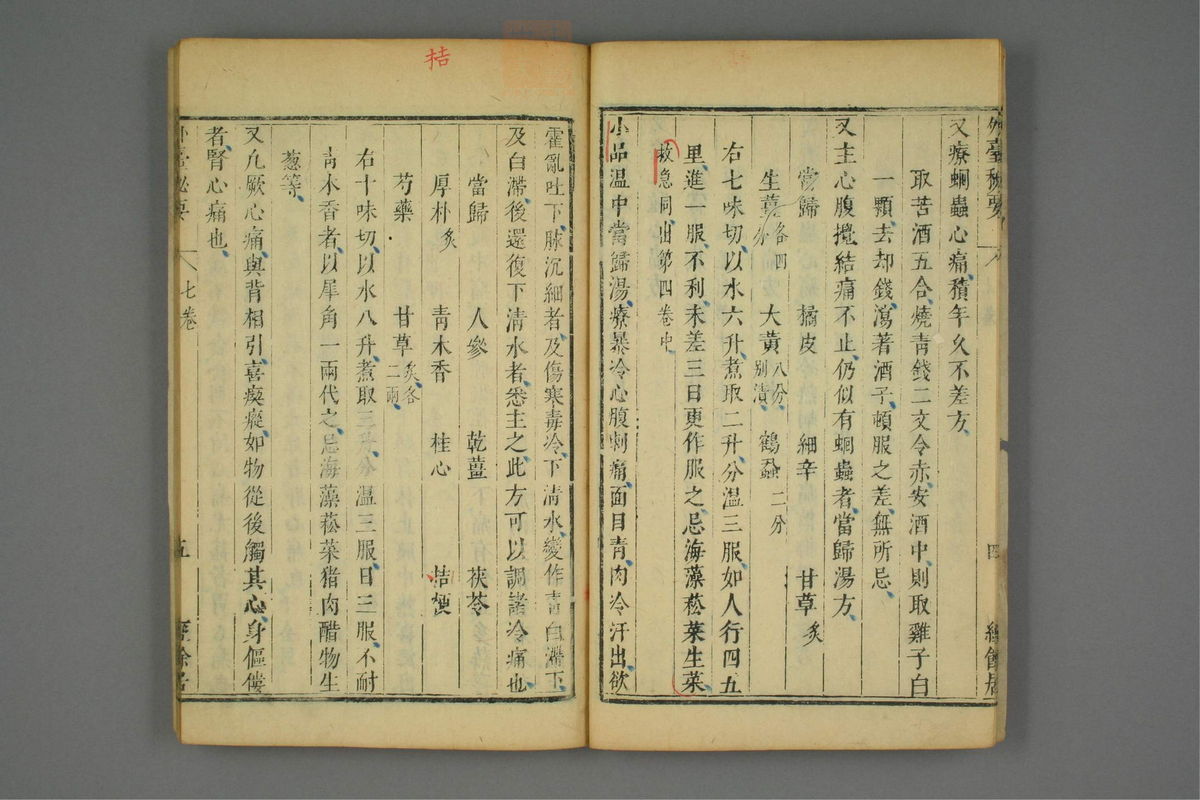 外臺秘要
四
經餘居
又療蛔蟲心痛積年久不差方
取苦酒五合燒青錢二文令赤安酒中則取雞子白
一顆去却錢瀉著酒子頓服之差無所忌
又主心腹攪結痛不止仍似有蛔蟲者當歸湯方
當歸 橘皮 細辛 甘草炙
生薑各四分 大黃八分別漬 鶴蝨二分
右七味切以水六升煮取二升分温三服如人行四五
里進一服不利未差三日更作服之忌海藻菘菜生菜
救急同出第四卷中
小品温中當歸湯療暴冷心腹刺痛面目青肉冷汗出欲
桔
霍亂吐下脉沉細者及傷寒毒冷下清水變作青白滯下
及白滯後還復下清水者悉主之此方可以調諸冷痛也
當歸 人參 乾薑 茯苓
厚朴炙 青木香 桂心 桔梗
芍藥 甘草炙各二兩
右十味切以水八升煮取三升分温三服日三服不耐
青木香者以犀角一兩代之忌海藻菘菜猪肉醋物生
葱等
又凡厥心痛與背相引喜瘈瘲如物從後觸其心身傴僂
者腎心痛也
外臺秘要
七卷
五
經餘居